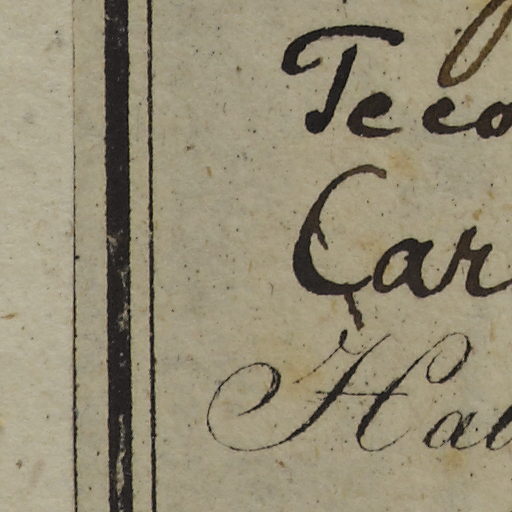 Teco
Car
Hal